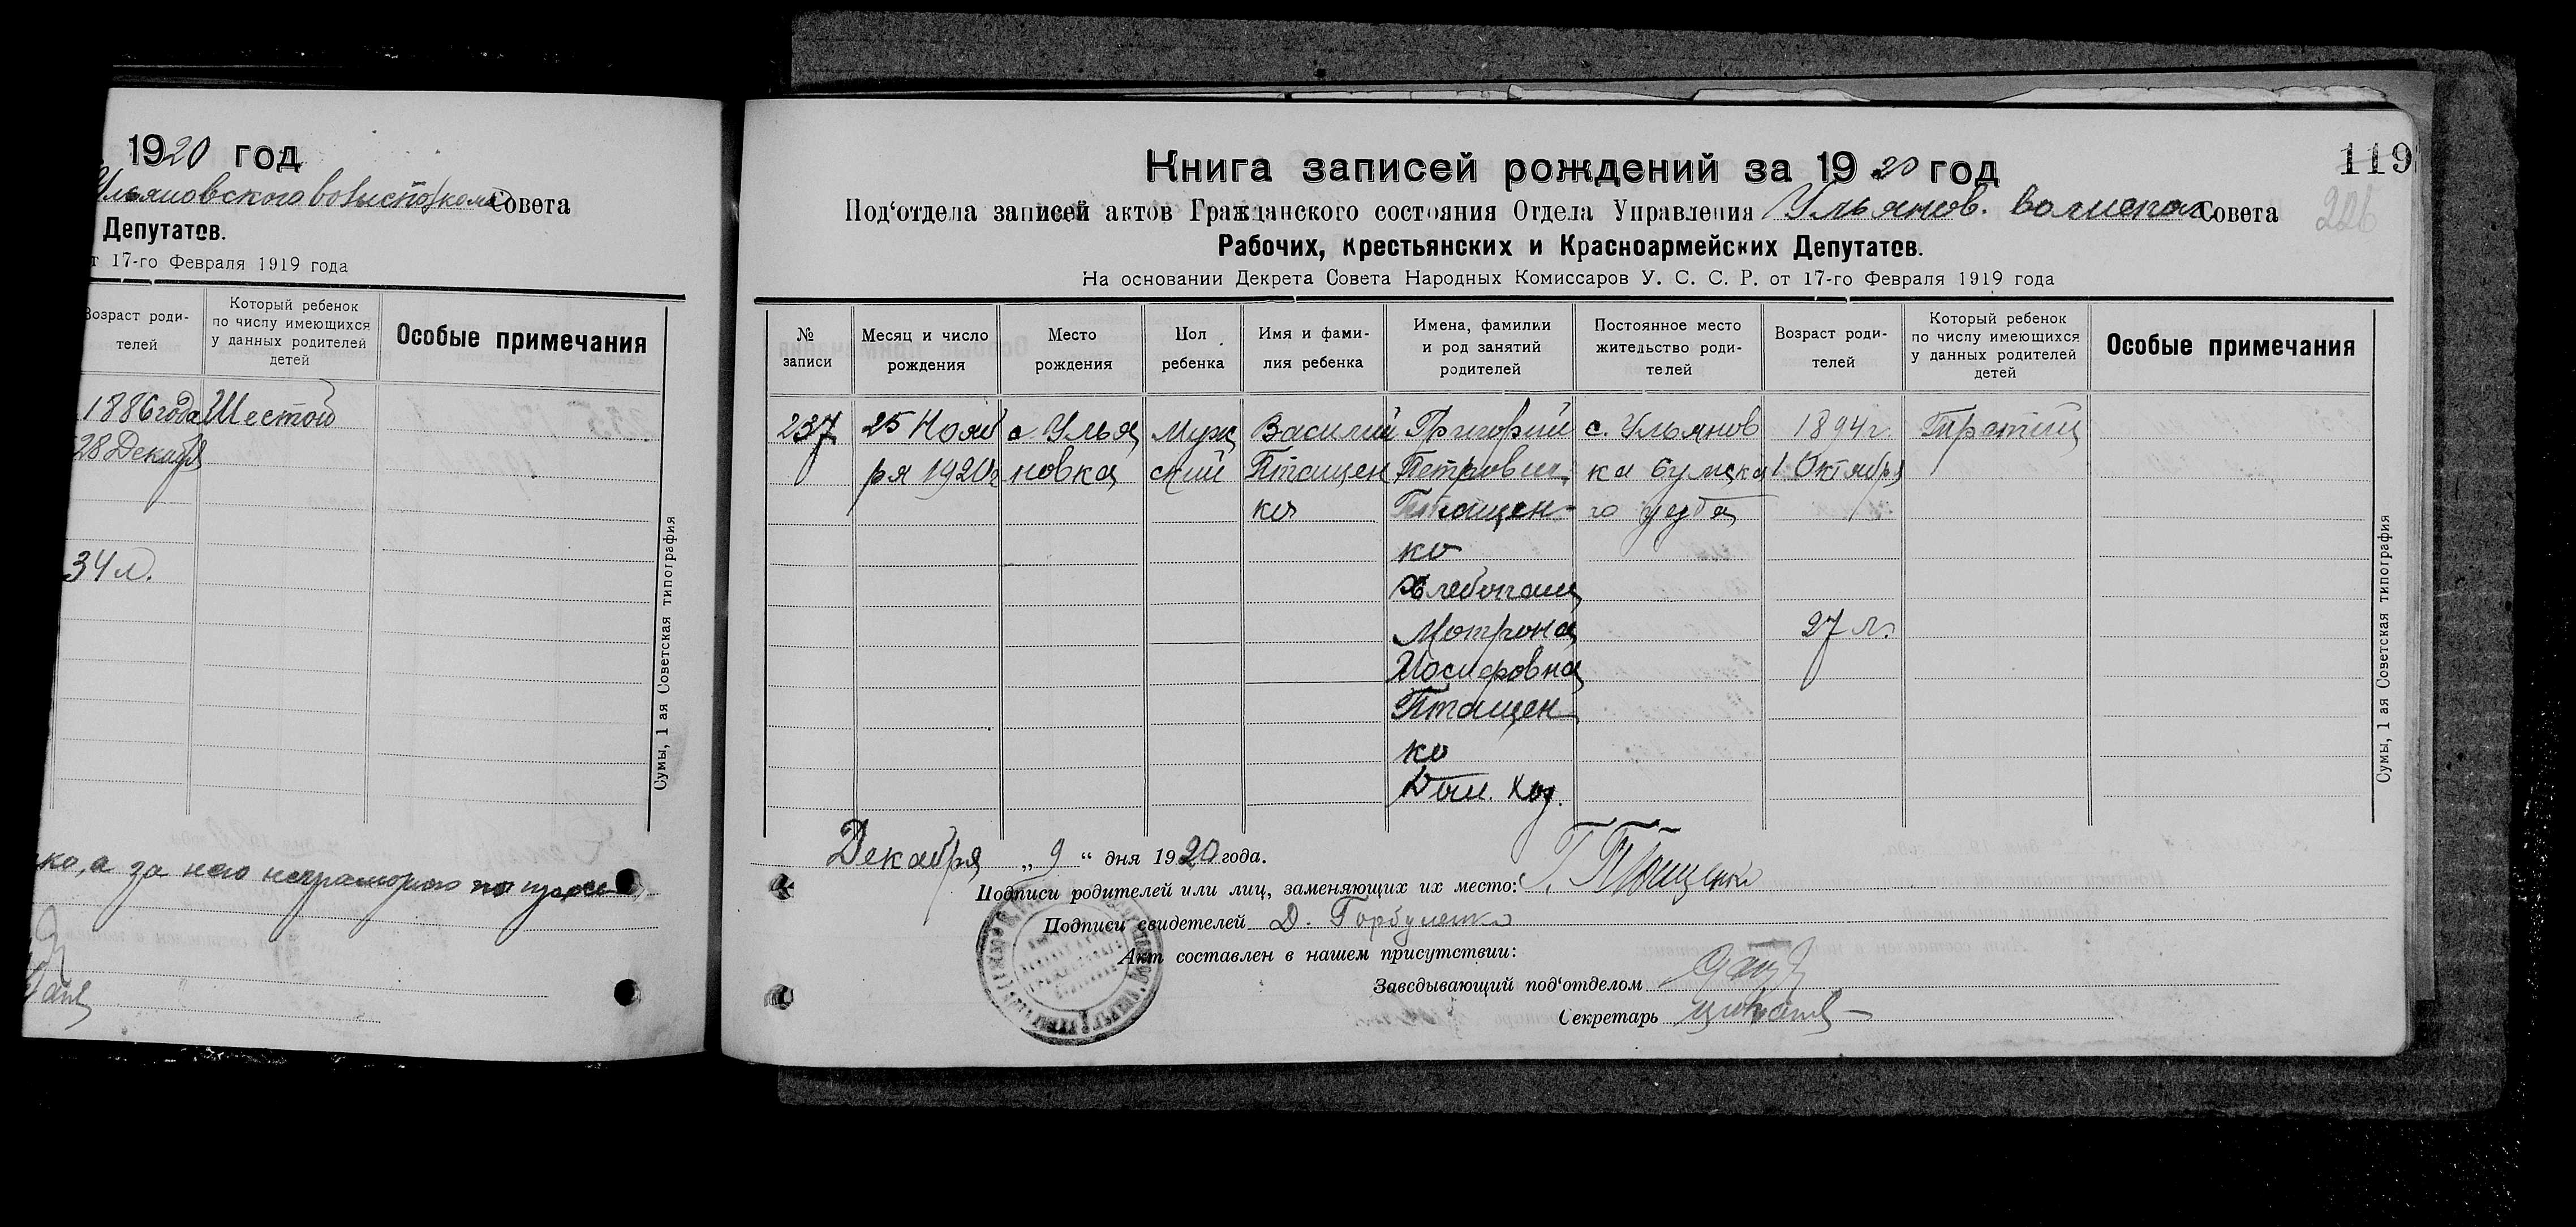 1920 год
Ульяновского волисполкома Совета
Депутатов.
т 17-го Февраля 1919 года
Возраст роди-
телей
Который ребенок
по числу имеющихся
у данных родителей
детей
Особые примечания
1886 года Шестой
28 Декабря
34 л.
ко, а за него неграмотного по
Сумы, 1 ая Советская типография
119
226
Книга записей рождений за 1920 год
Под‘отдела записей актов Гражданского состояния Отдела Управления Ульянов. волиспол. Совета
Рабочих, Крестьянских и Красноармейских Депутатов.
На основании Декрета Совета Народных Комиссаров У. С. С. Р. от 17-го Февраля 1919 года
№
записи
Месяц и число
рождения
Место
рождения
Пол
ребенка
Имя и фами-
лия ребенка
Имена, фамилки
и род занятий
родителей
Постоянное место
жительство роди-
телей
Возраст роди-
телей
Который ребенок
по числу имеющихся
у данных родителей
детей
Особые примечания
237 25 Нояб с. Улья Муж Василий Григорий с. Ульянов 1894 г. Третий
ря 1920 г новка ский Пташен Петрович ка Сумска 1 Октября
ко Пташен- го уезда
ко
хлебопаш
Мотрона 27 л.
Иосифовна
Пташен
ко
Дом. хоз.
Декабря „ 9 “ дня 1920 года.
Подписи родителей или лиц, заменяющих их место: Г. Пташенко
Подписи свидетелей Д. Горбуленко
Акт составлен в нашем присутствии:
Заведывающий под‘отделом
Секретарь
Сумы, 1 ая Советская типография